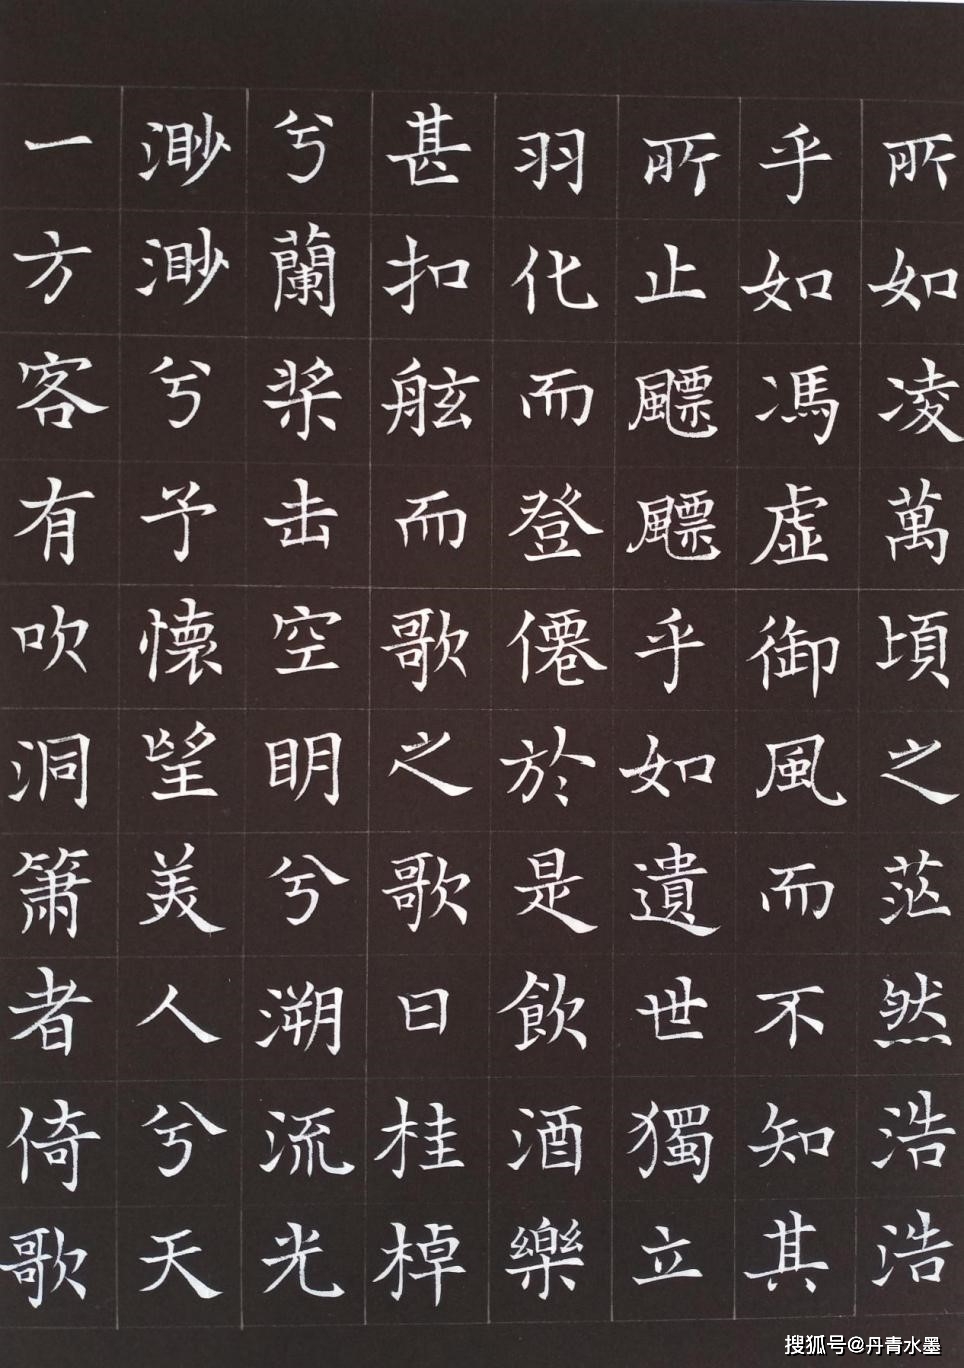 所如凌萬頃之茫然浩浩
乎如馮虛御風而不知其
所止飃飃乎如遺世獨立
羽化而登僊於是飲酒樂
甚扣舷而歌之歌曰桂棹
兮蘭槳击空明兮溯流光
渺渺兮予懷望美人兮天
一方客有吹洞箫者倚歌
搜狐号@丹青水墨